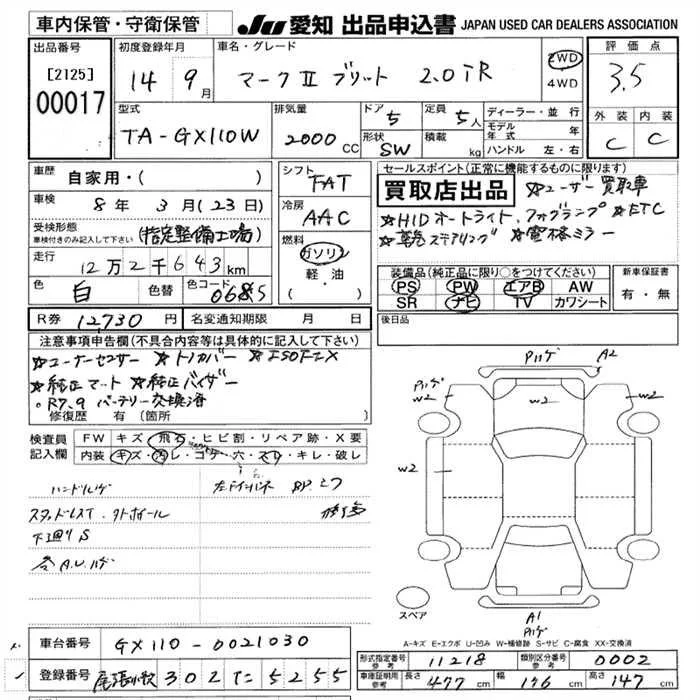 車内保管・守衛保管
JU 愛知 出品申込書 JAPAN USED CAR DEALERS ASSOCIATION
出品番号
[2125]
00017
初度登録年月
14 9月
車名・グレード
マークⅡ ブリット 2.0TR
2WD
4WD
評価点
3.5
外装 内装
C C
型式
TA-GX110W
排気量
2000 CC
ドア 5
定員 5人
形状 SW
積載 kg
ディーラー・並行
モデル年式 年
ハンドル 左・右
車歴
自家用・( )
車検
8年 3月(23日)
受検形態
車検付きのみ記入して下さい
(指定整備工場)
走行
12万2千643km
色
白
色替
色コード
068S
シフト
FAT
冷房
AAC
燃料
ガソリン
軽・油
セールスポイント(正常に機能するものに限ります)
買取店出品
☆ユーザー買取車
☆HIDオートライト、フォグランプ ☆ETC
☆革巻ステアリング ☆電格ミラー
装備品(純正品に限り○をつけてください)
PS PW エアB AW
SR ナビ TV カワシート
新車保証書
有・無
R券 12730円
名変通知期限 月 日
後日品
注意事項申告欄(不具合内容等は具体的に記入して下さい)
☆コーナーセンサー ☆トノカバー ☆ISOFIX
☆純正マット ☆純正バイザー
○R7.9 バッテリー交換済
修復歴 有(箇所
検査員記入欄
FW キズ・飛石・ヒビ割・リペア跡・X要
内装 キズ・汚レ・コゲ・穴・スレ・キレ・破レ
ハンドルハゲ
スタッドレスT
下廻りS
A.U.ハゲ
Pハゲ A2
Pハゲ
W2 W2 W2
W2 W2
スペア
A1
Pハゲ
A-キズ E-エクボ U-凹み W-補修跡 S-サビ C-腐食 XX-交換済
車台番号
GX110-0021030
登録番号
尾張小牧 302 た 5255
形式指定番号 参考 11218
類別区分番号 参考 0002
車庫証明用 参考 長さ 477cm 幅 176cm 高さ 147cm